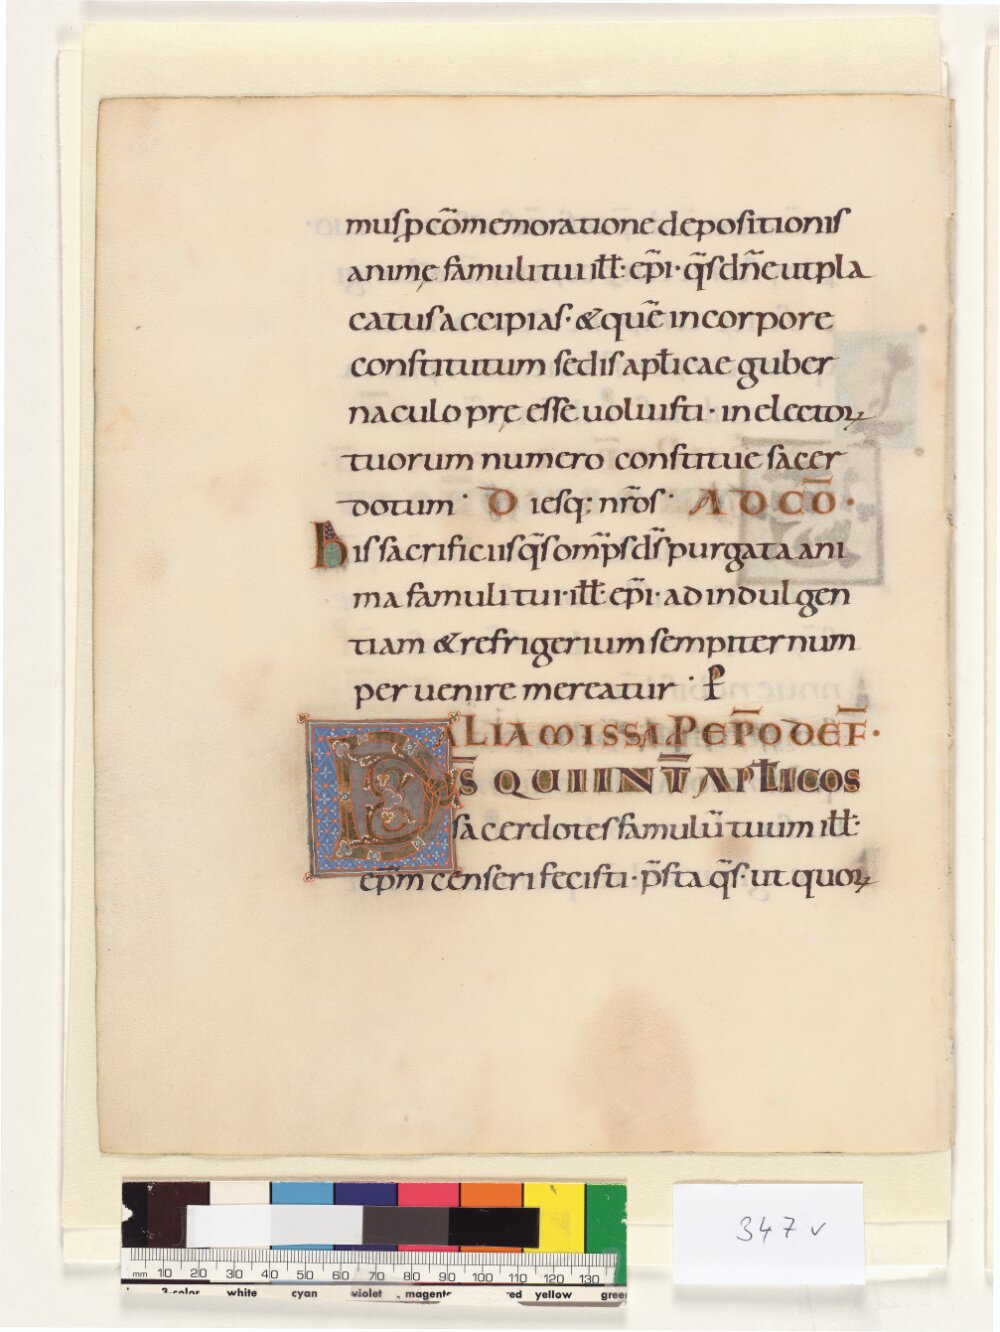 muſ p cõmemoratione depoſitioniſ
animę famuli tui ill̃: ep̃i· q̃ſ dñe ut pla
catuſ accipiaſ· & quẽ in corpore
conſtitutum ſediſ apl̃icae guber
naculo pręeſſe uoluiſti· in electoꝝ
tuorum numero conſtitue ſacer
dotum· D ieſq: nr̃oſ· AD CO̅·
hiſ ſacrificiiſ q̃ſ om̃pſ d̃ſ purgata ani
ma famuli tui· ill̃: ep̃i· ad indulgen
tiam & refrigerium ſempiternum
peruenire mereatur· ꝑ
ALIA MISSA P EP̅O DEF̅·
DS̅ QUI INT̅ AP̅L̅ICOS
ſacerdoteſ famulũ tuum ill̃:
ep̃m cenſeri feciſti· p̃ſta q̃ſ· ut quoꝝ
347 v
mm 10 20 30 40 50 60 70 80 90 100 110 120 130
3-color white cyan violet magenta red yellow green